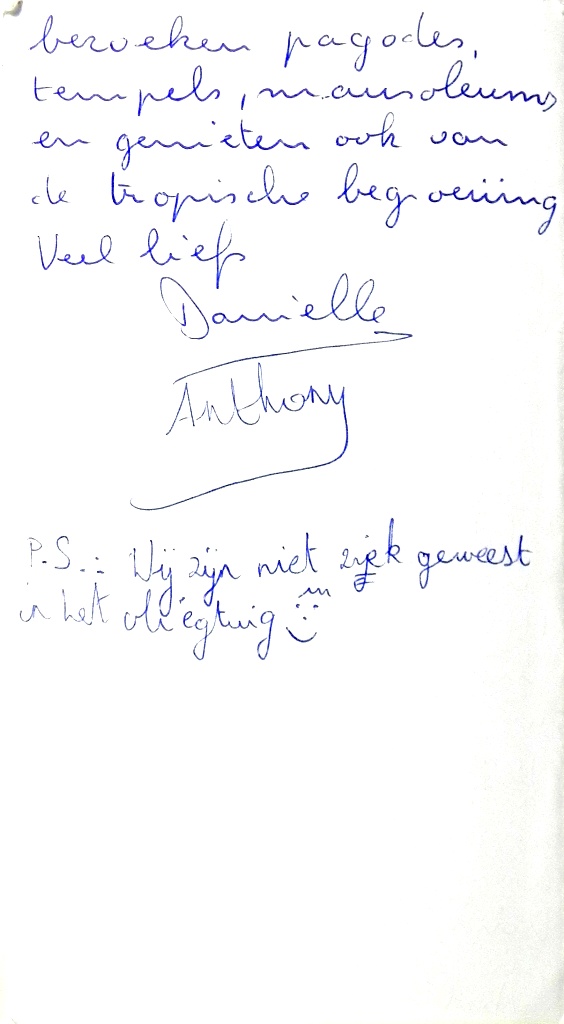 bezoeken pagodes,
tempels, mausoleums
en genieten ook van
de tropische begroeiing
Veel liefs
Danielle
Anthony
P.S.: Wij zijn niet ziek geweest
in het vliegtuig